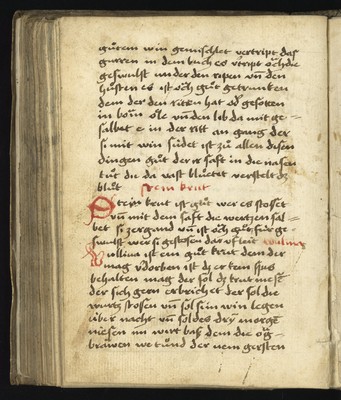 gutem win gemischlet vertript das
gurren in dem buch es vtript och die
geswulst under den ripen vn̄ den
hůsten es ist och gůt getrunken
dem der den riten hat od gesoten
in bom öle vn̄ den lib da mit ge=
salbet e in der ritt an gang der
si mit win sudet ist zů allen disen
dingen gůt der ir saft in die nasen
tůt die da vast bluetet verstelt dz
blůt stein krut
Stein krut ist gůt wer es stoset
vn̄ mit dem saft die wertzen sal=
bet si zergand vn̄ ist och gůt fúr ge=
swulst wer si gestosen dar vf leit wulina
Wullina ist ein gůt krut dem der
mag vdorben ist dz er kein spis
behalten mag der sol dz krut
der sich gern erbrichet der sol die
wurtz stosen vn̄ sol si in win legen
über nacht vn̄ sol des dry morgē
niesen im wirt bas dem die ög=
brawen we tůnd der nem gersten